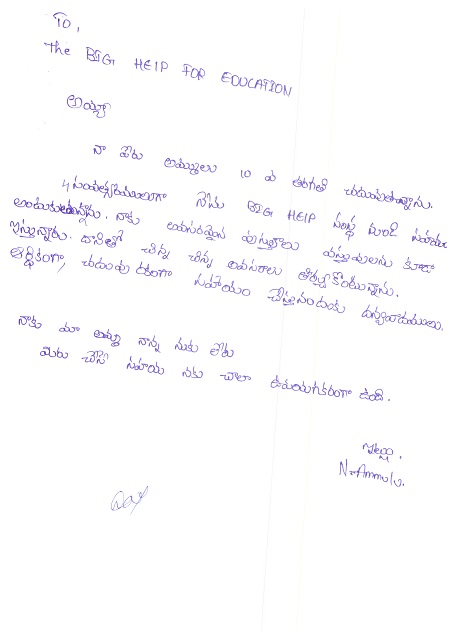 To,
The BIG HELP FOR EDUCATION
అయ్యా
నా పేరు అమ్ములు 10 వ తరగతి చదువుతున్నాను.
4 సంవత్సరములుగా నేను BIG HELP సంస్థ నుండి సహాయం
అందుకుంటున్నాను. నాకు అవసరమైన పుస్తకాలు వస్తువులను కూడా
ఇస్తున్నారు. దానితో చిన్న చిన్న అవసరాలు తీర్చుకొంటున్నాను.
ఆర్థికంగా, చదువు రకంగా సహాయం చేస్తునందుకు ధన్యవాదములు.
నాకు మా అమ్మా నాన్న నుకు లేరు
మీరు చేసే సహాయ నకు చాలా ఉపయోగకరంగా ఉంది.
ఇట్లు.
N. Ammulu.